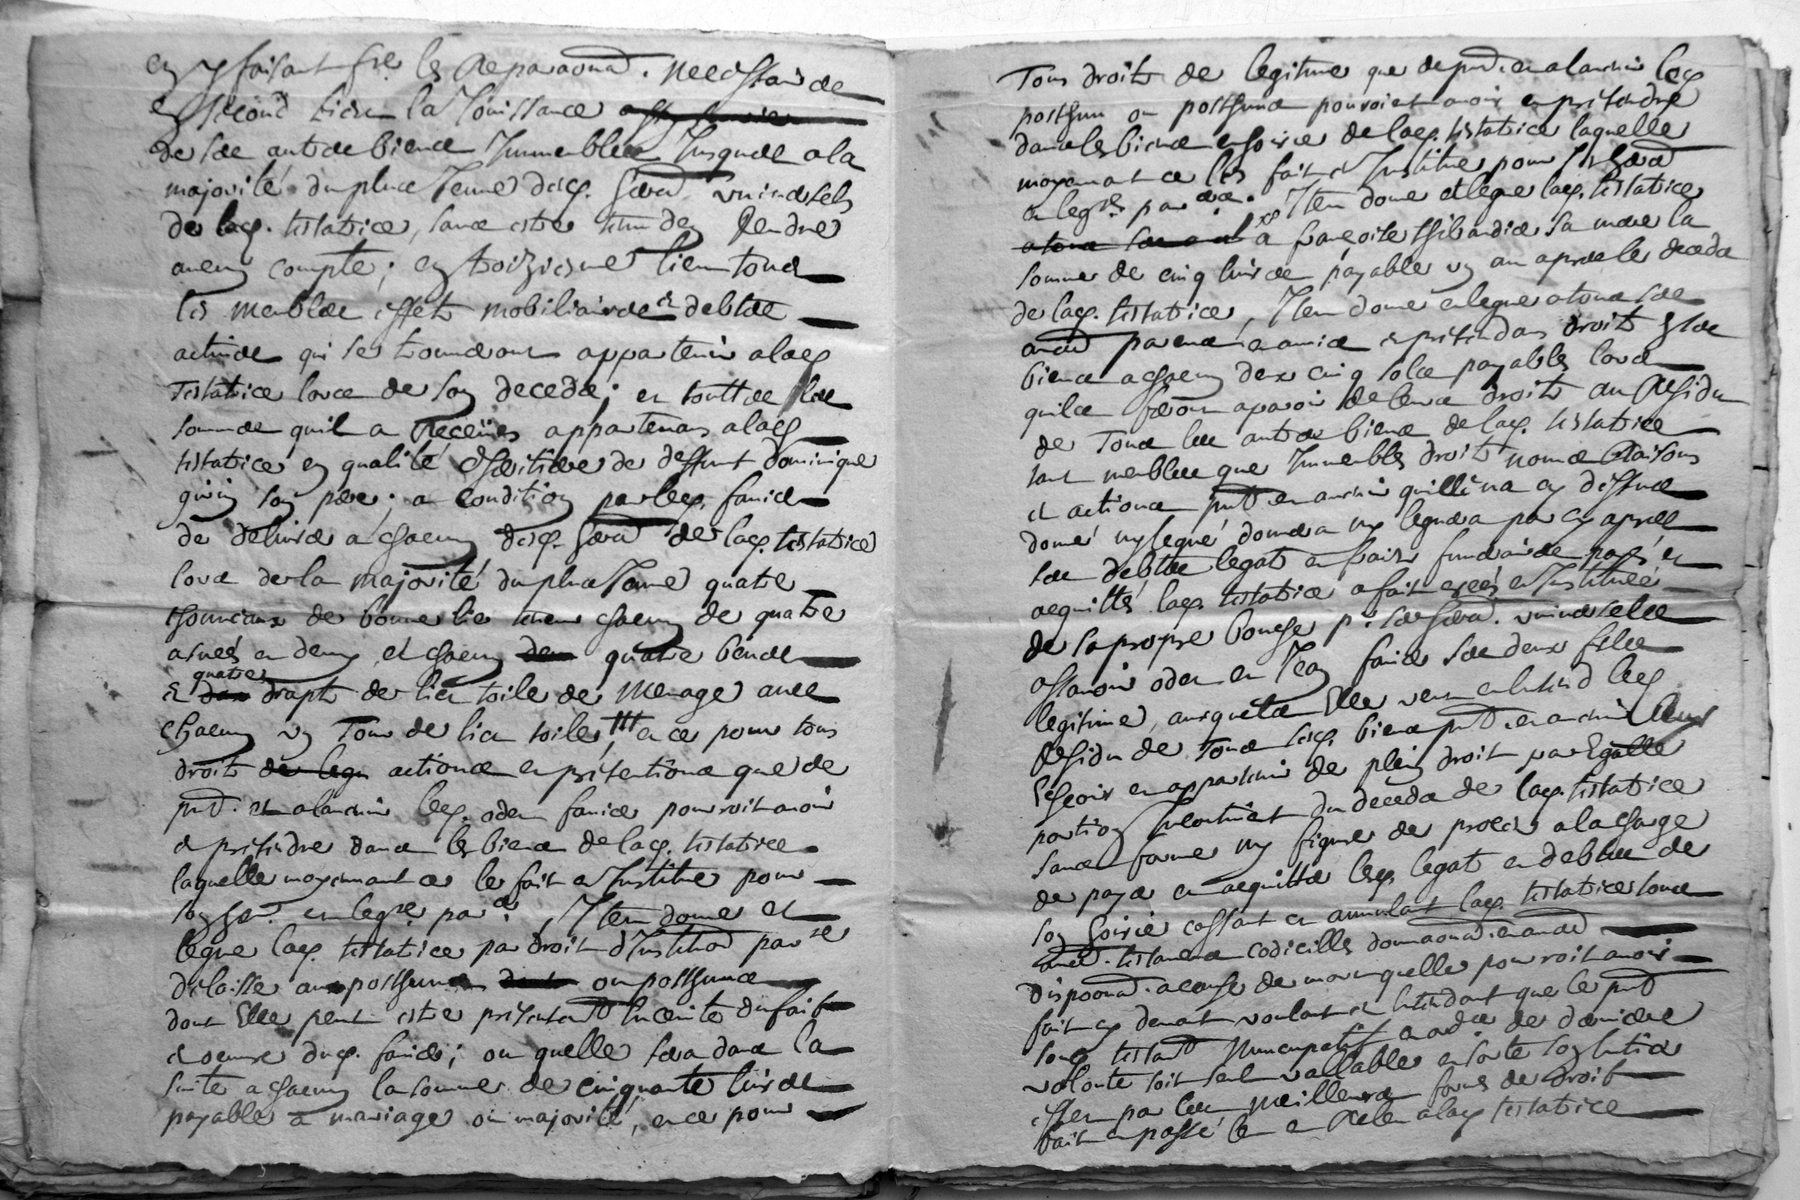 en y faisant fre les Reparaōns necessaires
en second lieu la Jouissance
de ses autres biens Immeubles Jusques a la
majorité du plus Jeune desd. hers universels
de lad. testatrice, sans estre tenu den Rendre
aucun compte; en troizieme lieu tous
les meubles effets mobiliaires et debtes
actives qui se trouveront appartenir a lad.
Testatrice lors de son decedz; en toutes les
sommes quil a Receües appartenans a lad.
testatrice en qualité dheritiere de deffunt dominique
son pere; a condition par led. favier
de delivrer a chacun desd. hers de lad. testatrice
lors de la majorité du plus Jeune quatre
de bonne chacun de quatre
et demy, et chacun quatre
et quatre draps de lict toile de menage avec
chacun un Tour de lict toile, et ce pour tous
droits actions et prétentions que de
pnt. et aladvenir led. oden favier pourroit avoir
et prétendre dans les biens de lad. testatrice
laquelle moyennant ce le fait et Institue pour
son her. et legre. par. , Item donne et
legue lad. testatrice par droit dInstituōn
delaisse aux posthumes ou posthume
dont Elle peut estre présentemt. enceinte du fait
et oeuvre dud. favier; ou quelle sera dans la
suite a chacun la somme de cinquante livres
payable a mariage ou majorité, et ce pour
Tous droits de legitime que de pnt. et aladvenir led.
posthume ou posthumes pouroient avoir et prétendre
dans les biens et hoirie de lad. testatrice laquelle
moyenant ce les fait et Institue pour ses hers
et legres par. Item donne et legue lad. testatrice
a françoise thibaudier sa mere la
somme de cinq livres payable un an apres le decedz
de lad. testatrice, Item donne et legue a tous ses
autres parens et amis et prétendans droits en ses
biens a chacun deux cinq sols payables lors
quils feront aparoir de leurs droits au Residu
de Tous les autres biens de lad. testatrice
tant meubles que Immeubles droits noms Raisons
et actions pnts et advenir quelle na cy dessus
donné ny legué donnera ny leguera par cy apres
ses debtes legats et frais funeraires payés et
acquittés lad. testatrice a fait créés et Institués
de sa propre bouche pr. ses hers. universelles
assavoir oden et Jean favier ses deux fils
legitimes, ausquels Elle veut et entend led.
Residu de Tous sesd. biens pnts. et advenir
Escheoir et appartenir de plein droit par Egalle
portion Incontinent du decedz de lad. testatrice
sans forme ny figure de procès a la charge
de payer et acquitter lesd. legats et debtes de
son hoirie cassant et annulant lad. testatrice tous
autres. testamens codicilles donnaōns et autres
disposōns. a cause de mort quelle pourroit avoir
fait cy devant voulant et entendant que le pnt
soit testamt Nuncupatif et ordre. de derniere
volonte soit seul vallable et sorte son entier
effet par les meilleures formes de droit
fait et passé leu et Releu a lad. testatrice